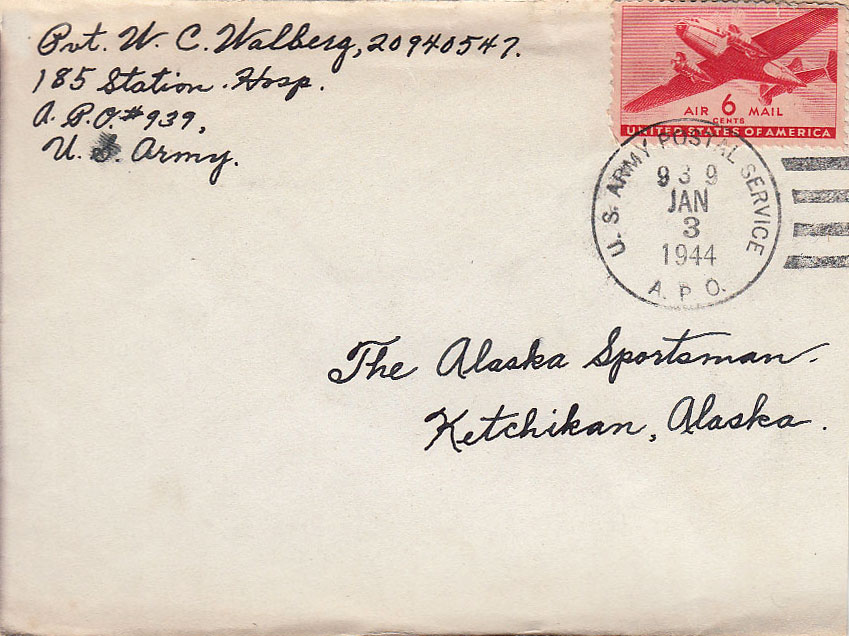 Pvt. W. C. Walberg, 20940547.
185 Station Hosp.
A. P.O. #939,
U. S. Army.
AIR 6 MAIL
CENTS
UNITED STATES OF AMERICA
U. S. ARMY POSTAL SERVICE
939
JAN
3
1944
A. P. O.
The Alaska Sportsman.
Ketchikan, Alaska.